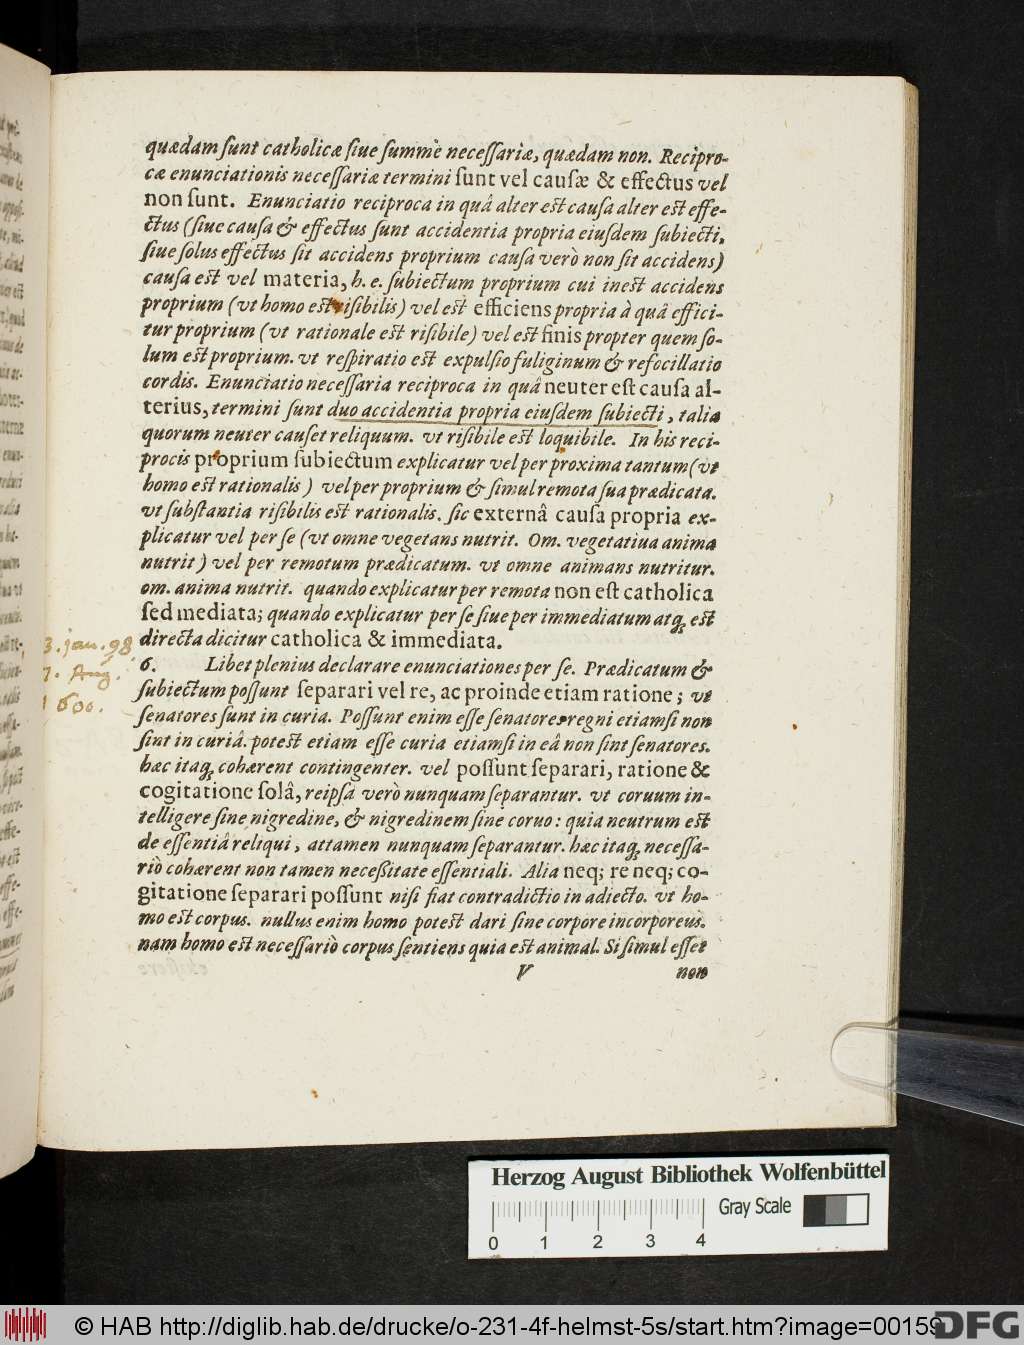 quædam ſunt catholicæ ſiue ſummè neceſſariæ, quædam non. Recipro-
cæ enunciationis neceſſariæ termini ſunt vel cauſæ & effectus vel
non ſunt. Enunciatio reciproca in quâ alter est cauſa alter est effe-
ctus (ſiue cauſa & effectus ſunt accidentia propria eiuſdem ſubiecti,
ſiue ſolus effectus ſit accidens proprium cauſa verò non ſit accidens)
cauſa est vel materia, h. e. ſubiectum proprium cui inest accidens
proprium (vt homo est riſibilis) vel est efficiens propria à quâ effici-
tur proprium (vt rationale est riſibile) vel est finis propter quem ſo-
lum est proprium. vt reſpiratio est expulſio fuliginum & refocillatio
cordis. Enunciatio neceſſaria reciproca in quâ neuter eſt cauſa al-
terius, termini ſunt duo accidentia propria eiuſdem ſubiecti, talia
quorum neuter cauſet reliquum. vt riſibile est loquibile. In his reci-
procis proprium ſubiectum explicatur vel per proxima tantum (vt
homo est rationalis) vel per proprium & ſimul remota ſua prædicata.
vt ſubſtantia riſibilis est rationalis. ſic externâ cauſa propria ex-
plicatur vel per ſe (vt omne vegetans nutrit. Om. vegetatiua anima
nutrit) vel per remotum prædicatum. vt omne animans nutritur.
om. anima nutrit. quando explicatur per remota non eſt catholica
ſed mediata; quando explicatur per ſe ſiue per immediatum atq; est
directa dicitur catholica & immediata.
3. jan. 98
7. Aug.
1600.
6. Libet plenius declarare enunciationes per ſe. Prædicatum &
ſubiectum poſſunt ſeparari vel re, ac proinde etiam ratione; vt
ſenatores ſunt in curia. Poſſunt enim eſſe ſenatores regni etiamſi non
ſint in curiâ. potest etiam eſſe curia etiamſi in eâ non ſint ſenatores.
hæc itaq; cohærent contingenter. vel poſſunt ſeparari, ratione &
cogitatione ſolâ, reipſâ verò nunquam ſeparantur. vt coruum in-
telligere ſine nigredine, & nigredinem ſine coruo: quia neutrum est
de eſſentiâ reliqui, attamen nunquam ſeparantur. hæc itaq; neceſſa-
riò cohærent non tamen neceſſitate eſſentiali. Alia neq; re neq; co-
gitatione ſeparari poſſunt niſi fiat contradictio in adiecto. vt ho-
mo est corpus. nullus enim homo potest dari ſine corpore incorporeus.
nam homo est neceſſariò corpus ſentiens quia est animal. Si ſimul eſſet
V non
Herzog August Bibliothek Wolfenbüttel
Gray Scale
0 1 2 3 4
© HAB http://diglib.hab.de/drucke/o-231-4f-helmst-5s/start.htm?image=00159
DFG